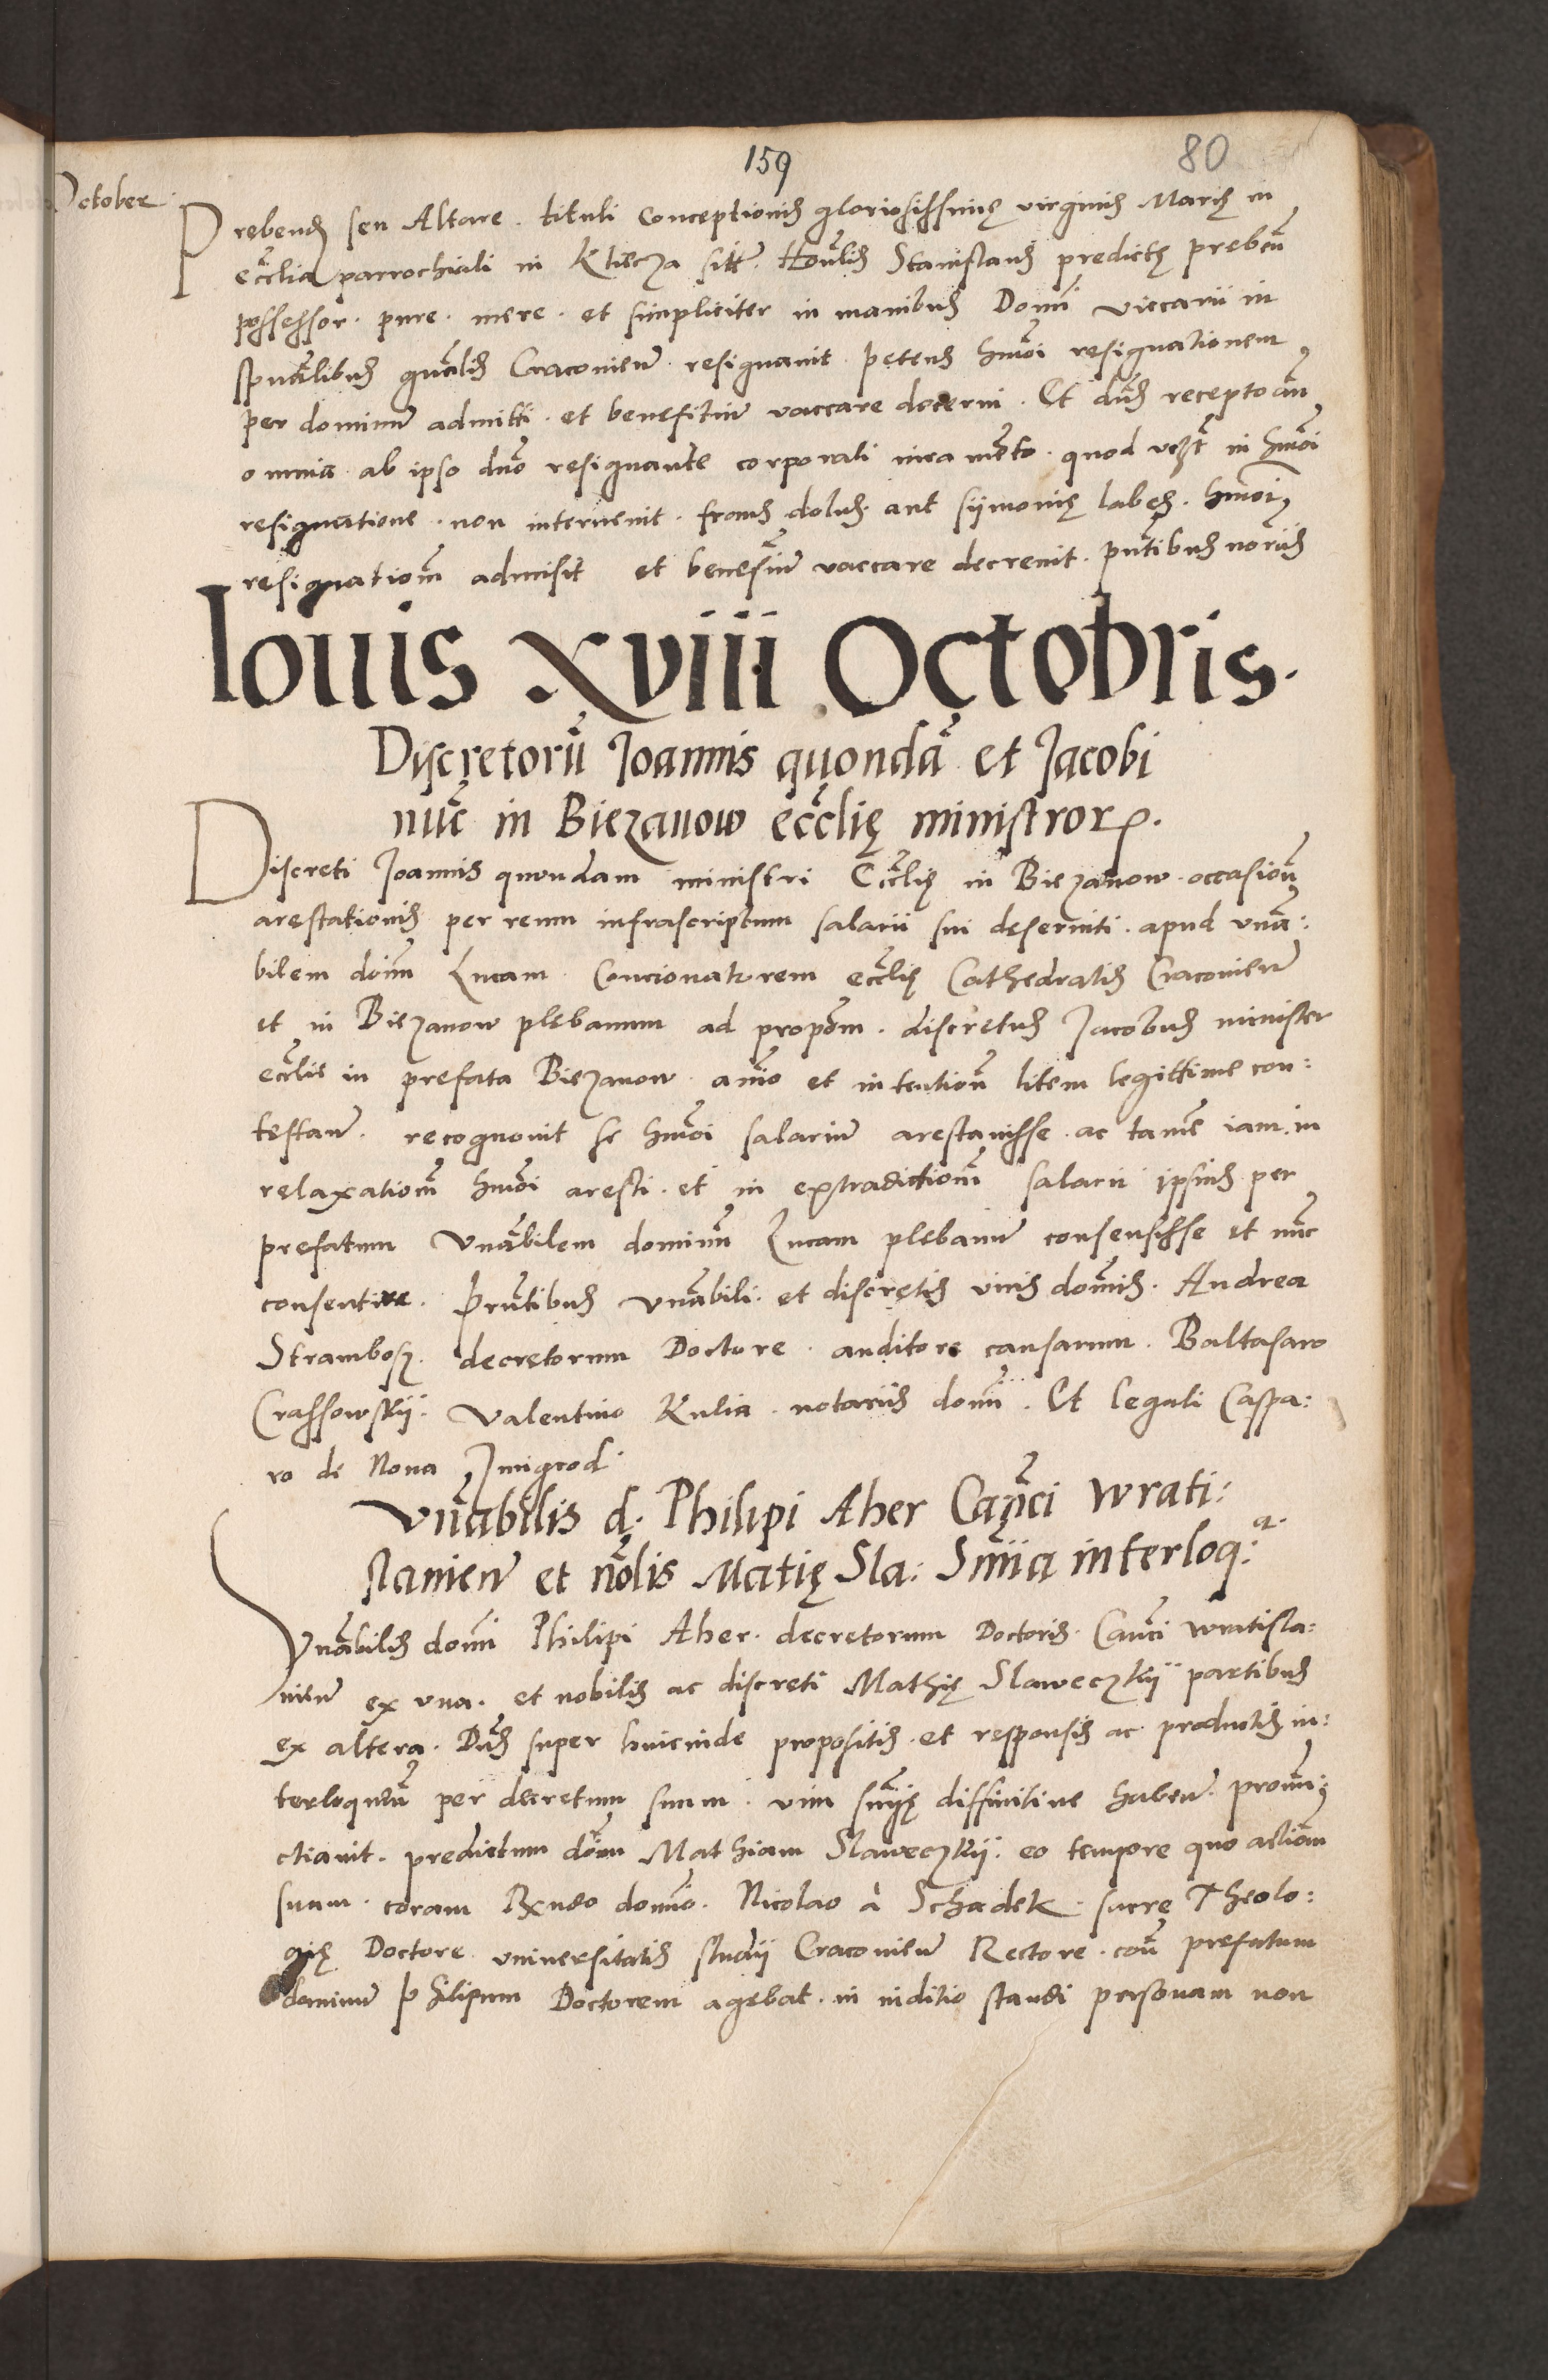 159
80
October
Prębendę seu Altare . tituli Conceptionis gloriosissimę virginis Marię in
ecclia parrochiali in Kliecza sitt. Honlis Stanislaus predictę prebeñ
possessor . pure . mere . et simpliciter in manibus Domi viccarii in
spualibus gnalis Cracovieñ resignavit . petens hmoi resignationem
per dominum admitti . et benefitiũ vaccare decerni . Et dñs recepto añ
omnia ab ipso dno resignante corporali iuramẽto . quod in hmoi
resignatione . non intervenit . fraus dolus aut siimonię labes . hmoi
resignationem admisit et benefiũ vaccare decrevit . pñtibus noriis
Iouis xviii Octobris.
Discretorũ Joannis quondã et Jacobi
nũc in Biezanow ecclię ministror.
Discreti Joannis quondam ministri Ecclię in Biezanow . occasioñ
arestationis per reum infrascriptum salarii sui deserviti . apud vna:
bilem doim Lucam Concionatorem ecclię Cathedralis Cracovieñ
et in Biezanow plebanum ad propom . discretus Jacobus minister
ecclie in prefata Biezanow animo et intentioñ litem legittime con:
testañ . recognovit se hmoi salarium arestavisse . ac tamẽ iam in
relaxationem hmoi aresti . et in extradictionem salarii ipsius per
prefatum Vnabilem dominũ Lucam plebanum consensisse et nũc
consentire . Prñtibus vnabili . et discretis viris dominis . Andrea
Strambosz . decretorum Doctore . auditore causarum . Baltasaro
Crassowskij . Valentino Kulia . notariis domi . Et leguli Caspa:
ro de Nova Zmigrod
Vnabilis d. Philipi Aher Canci Wrati:
slavieñ et nolis Matię Sla: Sniia interloq:a
Vnabilis domi Philipi Aher . decretorum Doctoris . Canci wratisla:
vieñ ex vna . et nobilis ac discreti Mathię Slaweczkij partibus
ex altera . Dñs super hincinde propositis . et responsis ac productis in:
terloqueñ per decretum suum . vim sniię diffinitive habeñ . pronũ
ctiavit . predictum dom Mathiam Slaweczkij . eo tempore quo actiom
suam . coram Rxndo domino . Nicolao à Schadek . sacrę Theolo:
gię Doctore universitatis studii Cracovieñ Rectore . coñ prefatum
dominum Philipum Doctorem agebat . in iuditio standi personam non